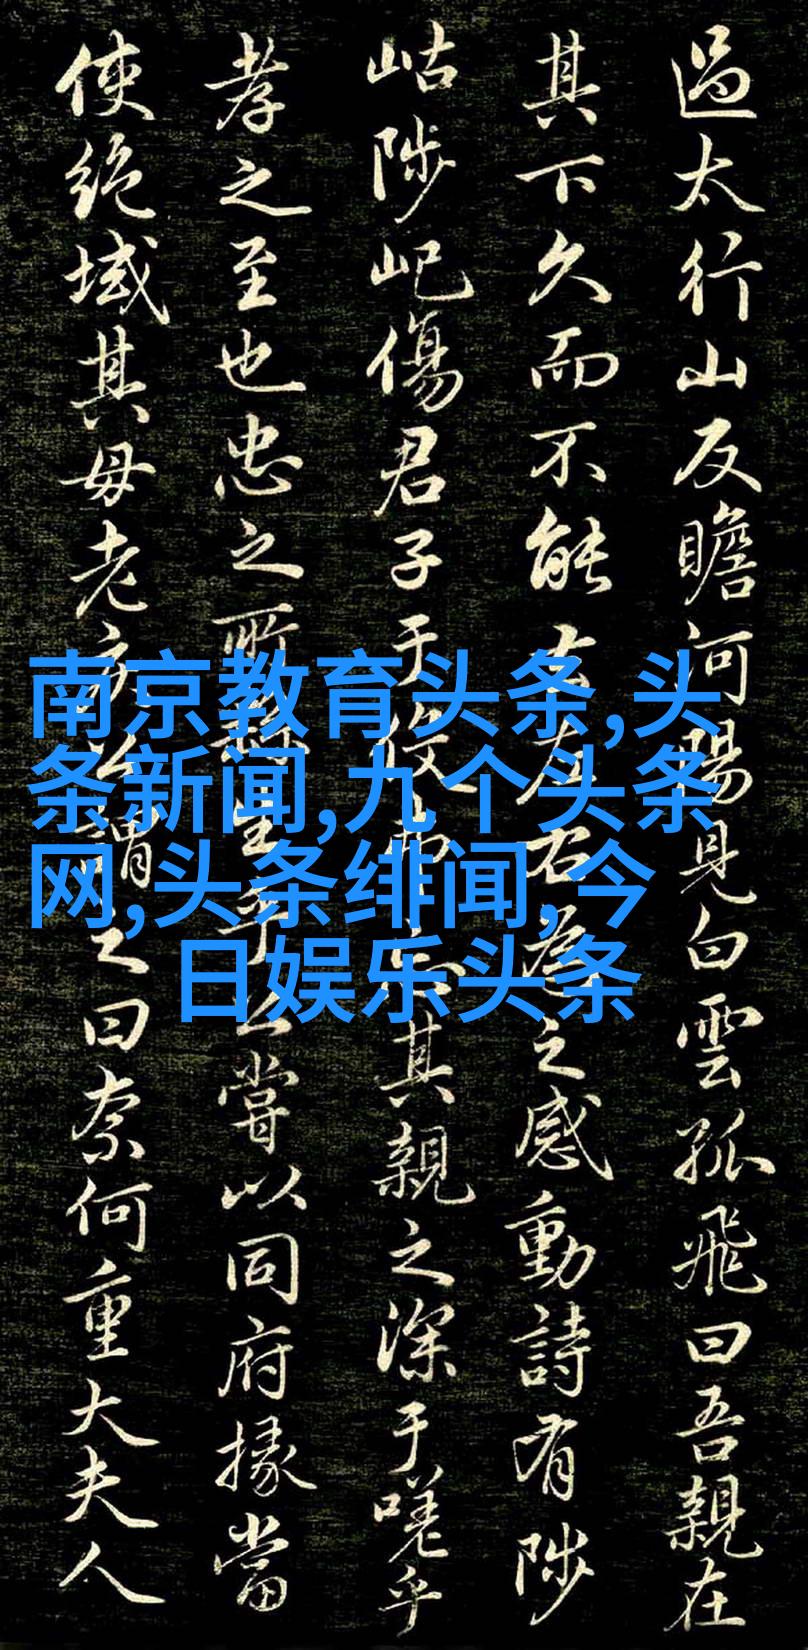 過太行山反瞻河陽見白雲孤飛曰吾親在
其下久而不能去左右為之感動詩有陟
岵陟屺傷君子于役忘其親之深于嗟乎
孝之至也忠之所生乎公嘗以同府掾當
使絕域其母老疾公謂之曰奈何重大夫人
南京教育头条,头
条新闻,九个头条
网,头条绯闻,今
日娱乐头条